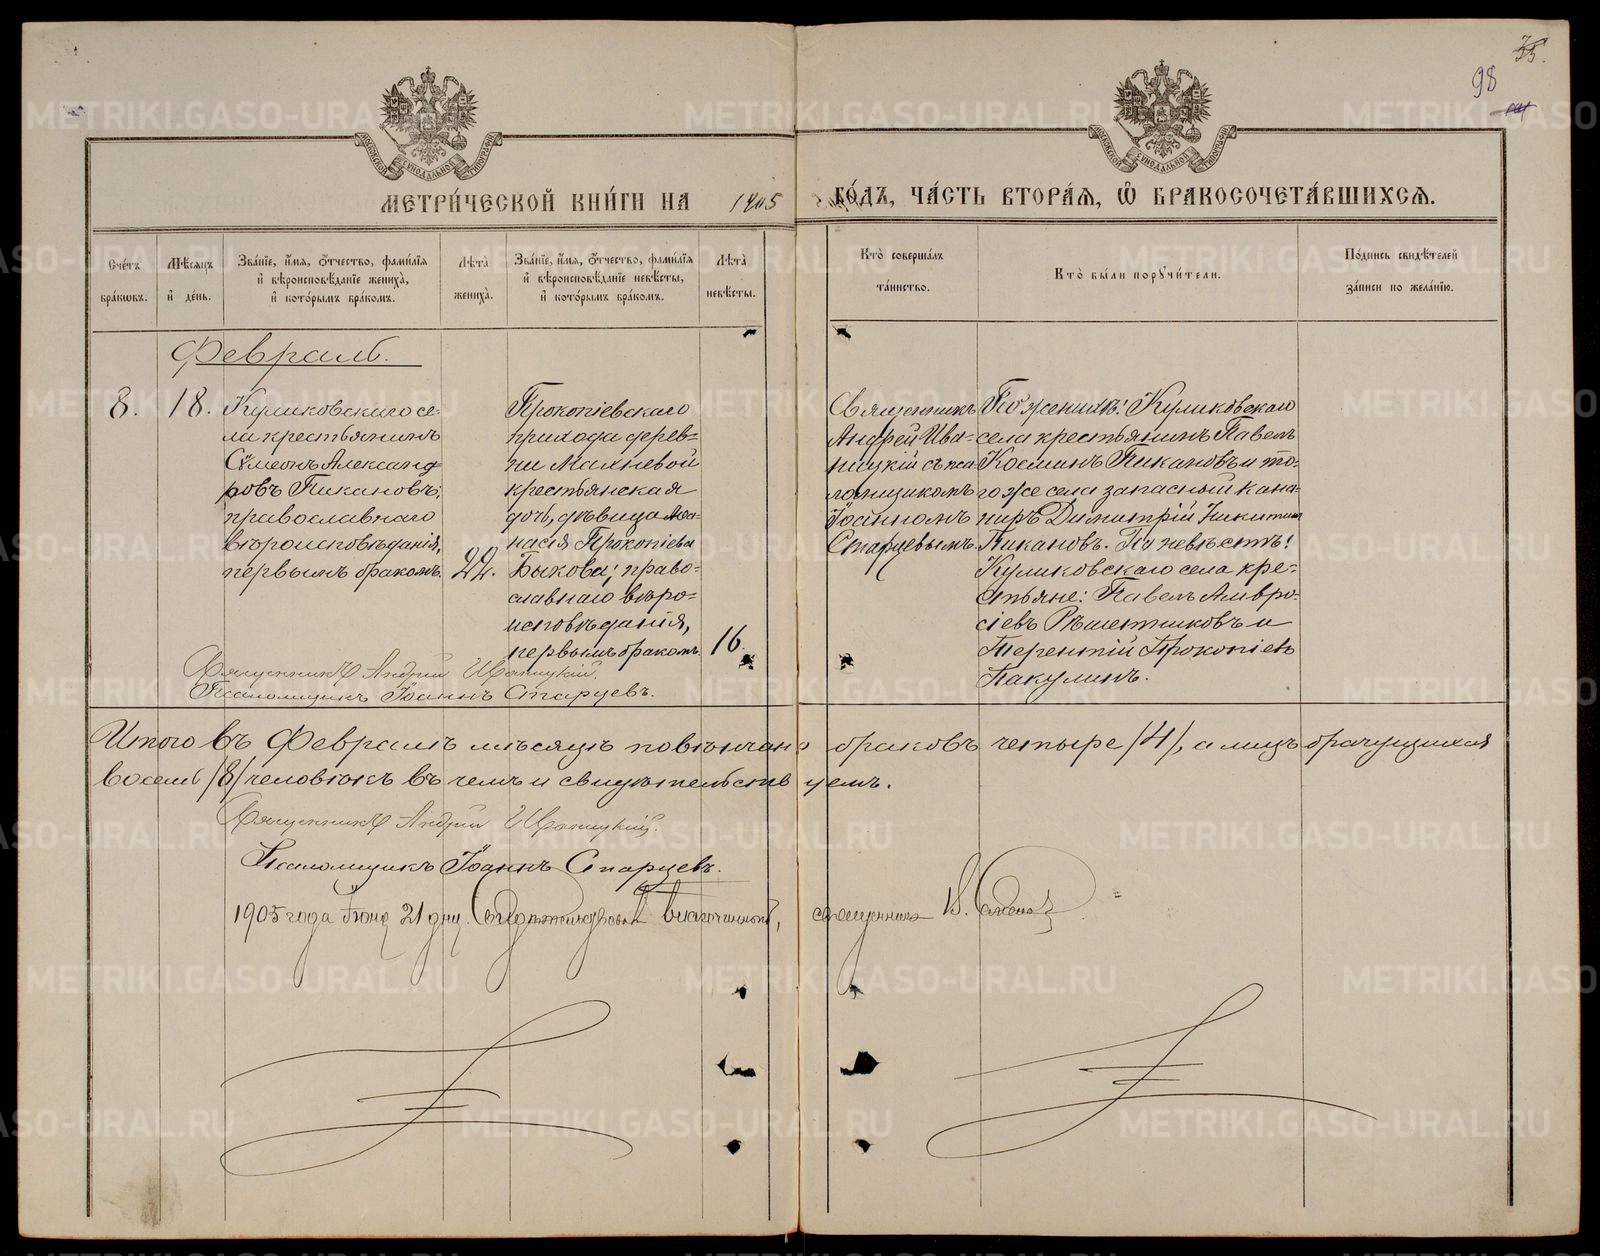 35.
98
МОСКОВСКОЙ СУНОДАЛЬНОЙ ТИПОГРАФІИ
МОСКОВСКОЙ СУНОДАЛЬНОЙ ТИПОГРАФІИ
МЕТРИ́ЧЕСКОЙ КНИ́ГИ НА 1905 ГО́ДЪ, ЧА́СТЬ ВТОРА́Я, Ѡ҆ БРАКОСОЧЕТА́ВШИХСЯ.
Счетъ браковъ.
Мѣсяцъ и день.
Званіе, имя, отчество, фамилія и вѣроисповѣданіе жениха, и которымъ бракомъ.
Лѣта жениха.
Званіе, имя, отчество, фамилія и вѣроисповѣданіе невѣсты, и которымъ бракомъ.
Лѣта невѣсты.
Кто совершалъ таинство.
Кто были поручители.
Подпись свидѣтелей записи по желанію.
Февраль.
8.
18.
Куликовскаго се-
ла крестьянинъ
Сѵмеонъ Александ
ровъ Пикановъ;
православнаго
вѣроисповѣданія,
первымъ бракомъ.
22.
Прокопіевскаго
прихода дерев-
ни Махневой
крестьянская
дочь, дѣвица Аѳа-
насія Прокопіева
Быкова; право-
славнаго вѣро-
исповѣданія,
первымъ бракомъ.
16.
Священникъ
Андрей Ива-
ницкій съ пса-
ломщикомъ
Іоанномъ
Старцевымъ.
По женихѣ: Куликовскаго
села крестьянинъ Павелъ
Косминъ Пикановъ и то-
го же села запасный кана-
ниръ Димитрій Никитинъ
Пикановъ. По невѣстѣ:
Куликовскаго села кре-
стьяне: Павелъ Амвро-
сіевъ Рѣшетниковъ и
Терентій Прокопіевъ
Пакулинъ.
Священникъ Андрей Иваницкій.
Псаломщикъ Іоаннъ Старцевъ.
Итого въ Февралѣ мѣсяцѣ повѣнчано браковъ четыре /4/, а лицъ брачущихся
восемь /8/ человѣкъ въ чемъ и свидѣтельствуемъ.
Священникъ Андрей Иваницкій.
Псаломщикъ Іоаннъ Старцевъ.
1905 года Іюня 21 дня. Свидѣтельствовалъ Благочинный, священникъ В.
METRIKI.GASO-URAL.RU